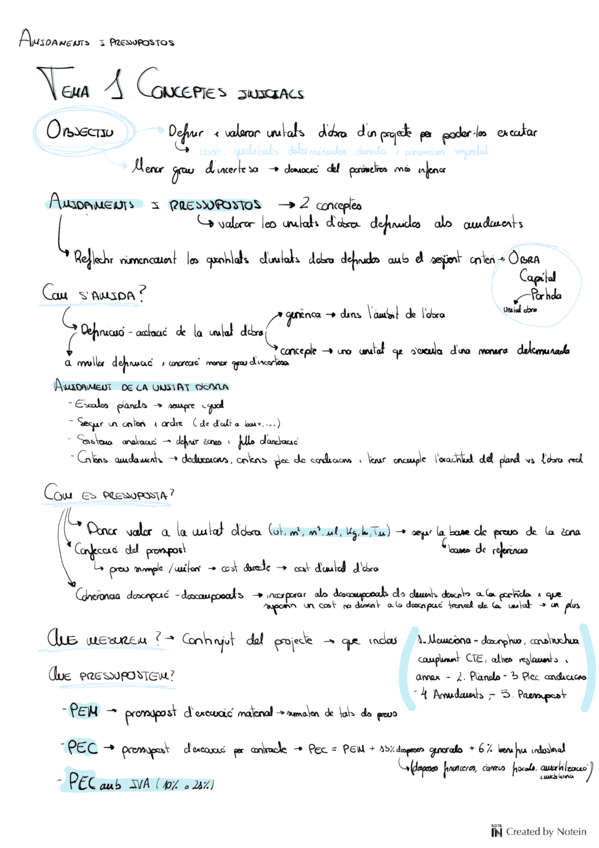 AMIDAMENTS I PRESSUPOSTOS
TEMA 1 CONCEPTES INICIALS
OBJECTIU → Definir i valorar unitats d'obra d'un projecte per poder-les executar
↳ cost, qualitats determinades, durada i paràmetres seguretat
→ Menor grau d'incertesa → domació del paràmetres més inferior
AMIDAMENTS I PRESSUPOSTOS → 2 conceptes
↳ valorar les unitats d'obra definides als amidaments
↳ Reflectir numèricament les quantitats d'unitats d'obra definides amb el següent criteri → OBRA
Capítol
Partida
Unitat obra
COM S'AMIDA?
→ genèrica → dins l'àmbit de l'obra
↳ Definició - acotació de la unitat d'obra
→ concepte → una unitat que s'executa d'una manera determinada
a millor definició i concreció menor grau d'incertesa
AMIDAMENT DE LA UNITAT D'OBRA
- Escales plànols → sempre igual
- Seguir un criteri i ordre (de dalt a baix, ...)
- Sistema anotació → definir zones i fulls d'anotació
- Criteris amidaments → deduccions, criteris plec de condicions i tenir en compte l'exactitud del plànol vs l'obra real
COM ES PRESSUPOSTA?
↳ Donar valor a la unitat d'obra (ut, m², m³, ml, Kg, h, Tn) → segur la base de preus de la zona
↳ bases de referència
↳ Confecció del pressupost
↳ preu simple / unitari → cost directe → cost d'unitat d'obra
↳ Coherència descripció - descompostos → incorporar als descompostos els elements descrits a la partida i que
suposin un cost no descrit a la descripció general de la unitat → un plus
QUE MESUREM? → Contingut del projecte → que inclou
1. Memòria - descriptiva, constructiva
compliment CTE, altres reglaments i
annex - 2. Plànols - 3 Plec condicions
- 4 Amidaments - 5. Pressupost
QUE PRESSUPOSTEM?
- PEM → pressupost d'execució material → sumatori de tots els preus
- PEC → pressupost d'execució per contracte → PEC = PEM + 13% despeses generals + 6% benefici industrial
↳ (despeses financeres, càrregues fiscals,
- PEC amb IVA (10% o 21%)
NOTE IN Created by Notein